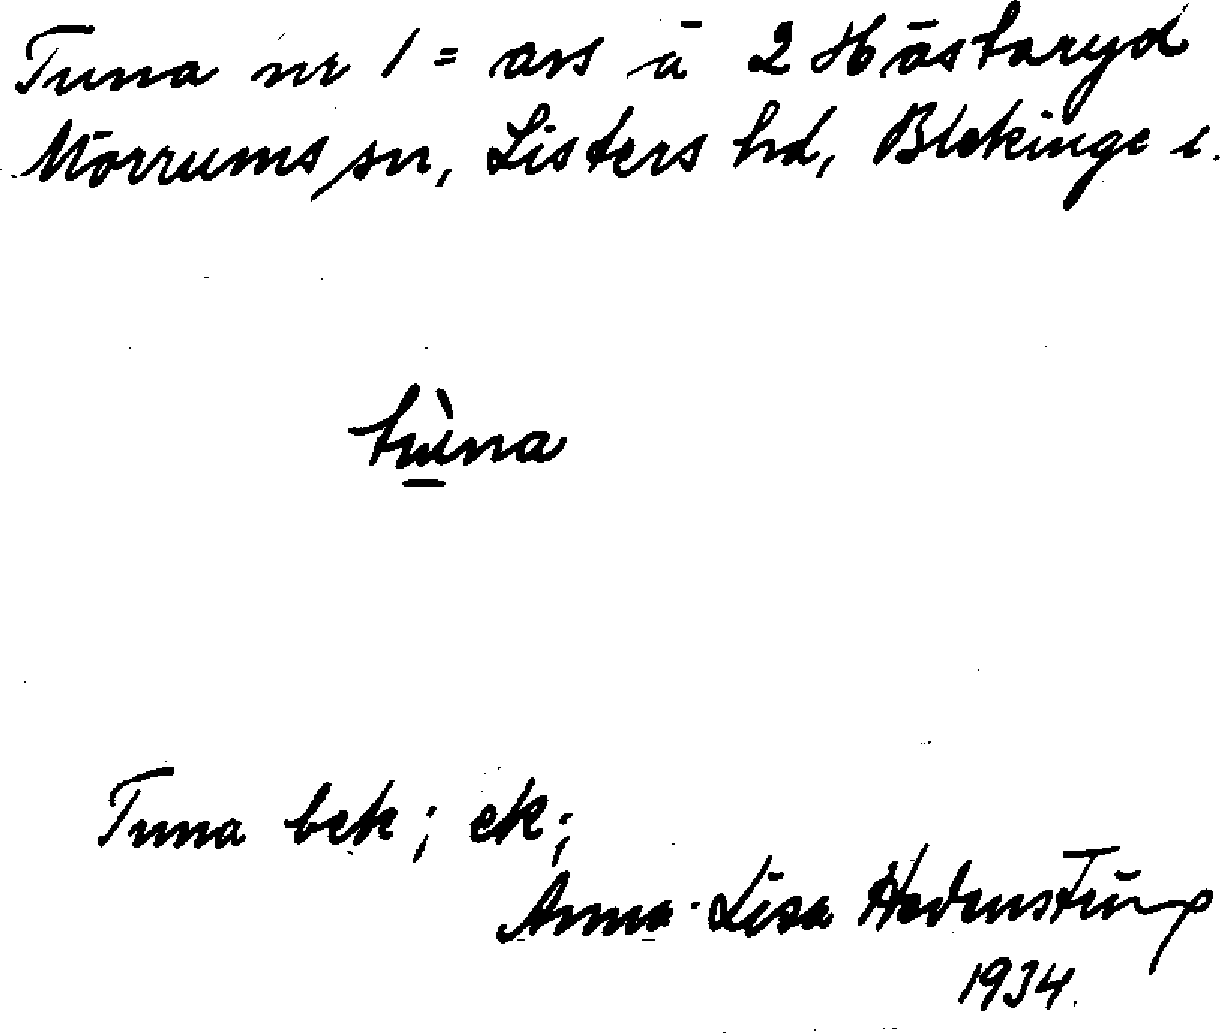 Tuna nr 1 = avs å 2 Hästaryd
Mörrums sn, Listers hd, Blekinge l.
tùna
Tuna bek; ek;
Anna-Lisa Hedenstierp
1934.